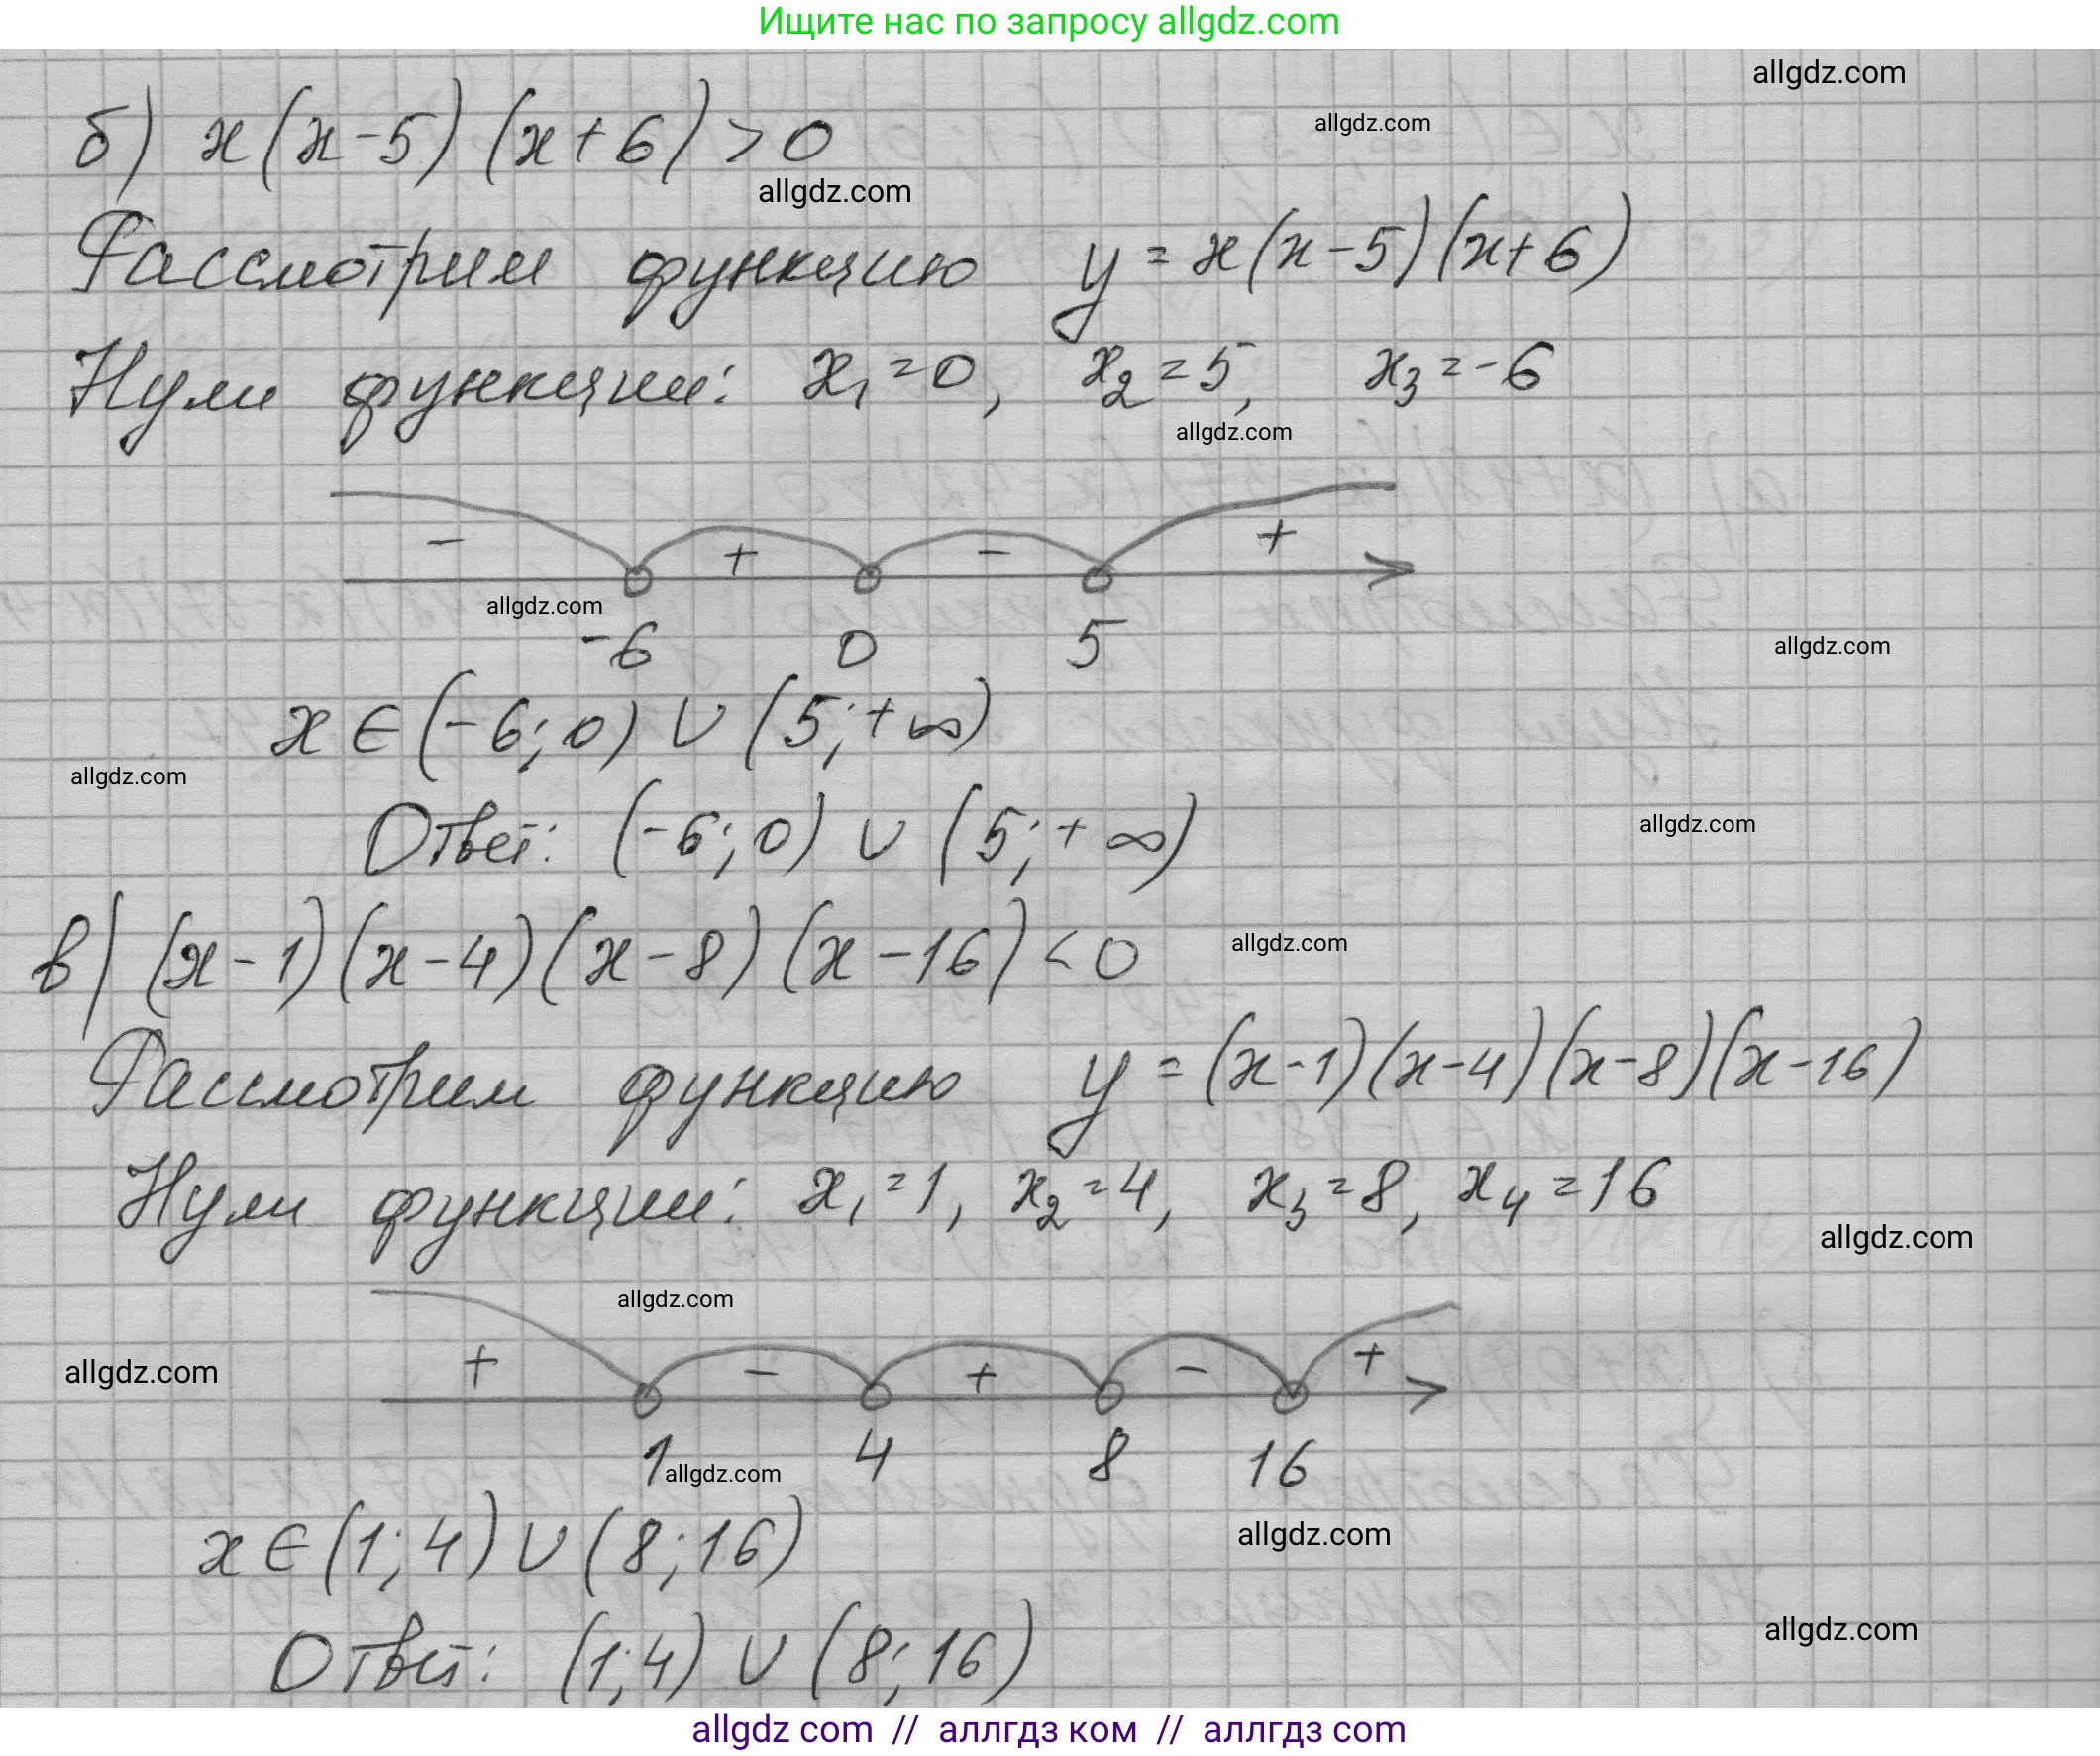 Ищите нас по запросу allgdz.com
allgdz.com
б) x(x-5)(x+6)>0
allgdz.com
allgdz.com
Рассмотрим функцию y=x(x-5)(x+6)
Нули функции: x₁=0, x₂=5, x₃=-6
allgdz.com
- + - +
allgdz.com
-6 0 5
allgdz.com
x∈(-6;0)∪(5;+∞)
allgdz.com
Ответ: (-6;0)∪(5;+∞)
allgdz.com
в) (x-1)(x-4)(x-8)(x-16)<0
allgdz.com
Рассмотрим функцию y=(x-1)(x-4)(x-8)(x-16)
Нули функции: x₁=1, x₂=4, x₃=8, x₄=16
allgdz.com
allgdz.com
+ - + - +
allgdz.com
1 4 8 16
allgdz.com
x∈(1;4)∪(8;16)
allgdz.com
Ответ: (1;4)∪(8;16)
allgdz.com
allgdz com // аллгдз ком // аллгдз com